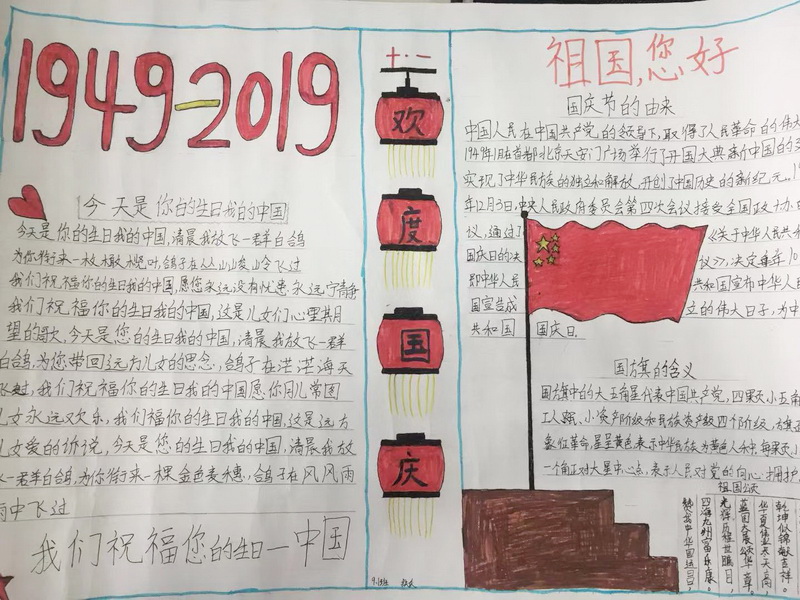 1949-2019
今天是你的生日我的中国
今天是你的生日我的中国,清晨我放飞一群白鸽
为你衔来一枚橄榄叶,鸽子在丛山峻岭飞过
我们祝福你的生日我的中国,愿您永远没有忧患永远宁静
我们祝福你的生日我的中国,这是儿女们心里期
望的歌,今天是您的生日我的中国,清晨我放飞一群
白鸽,为您带回远方儿女的思念,鸽子在茫茫海天
飞过,我们祝福你的生日我的中国愿你
儿女永远欢乐,我们祝福你的生日我的中国,这是远方
儿女爱的诉说,今天是您的生日我的中国,清晨我放
一群白鸽,为你衔来一棵金色麦穗,鸽子在风风雨
雨中飞过
我们祝福您的生日一中国
十·一
欢
度
国
庆
祖国,您好
国庆节的由来
中国人民在中国共产党的领导下,取得了人民革命的伟大
在首都北京天安门广场举行了开国大典新中国的
实现了中华民族的独立和解放,开创了中国历史的新纪元。
年12月3日,中央人民政府委员会第四次会议接受全国政协
议,通过了《关于中华人民共和
国庆日的决议》,决定每年10
即中华人民共和国宣布中华人民
国宣告成立的伟大日子,为中
共和国国庆日。
国旗的含义
国旗中的大五角星代表中国共产党,四颗小五角
工人 小资产阶级和民族资产级四个阶级,
象征革命,星呈黄色表示中华民族为黄色人种,每颗
一个角正对大星中心点,表示人民对党的向心 拥护
祖国颂
乾坤似锦献吉祥。
华夏 天高,
蓝图大展颂华章。
光辉历程世瞩目,
四海九州富乐康。